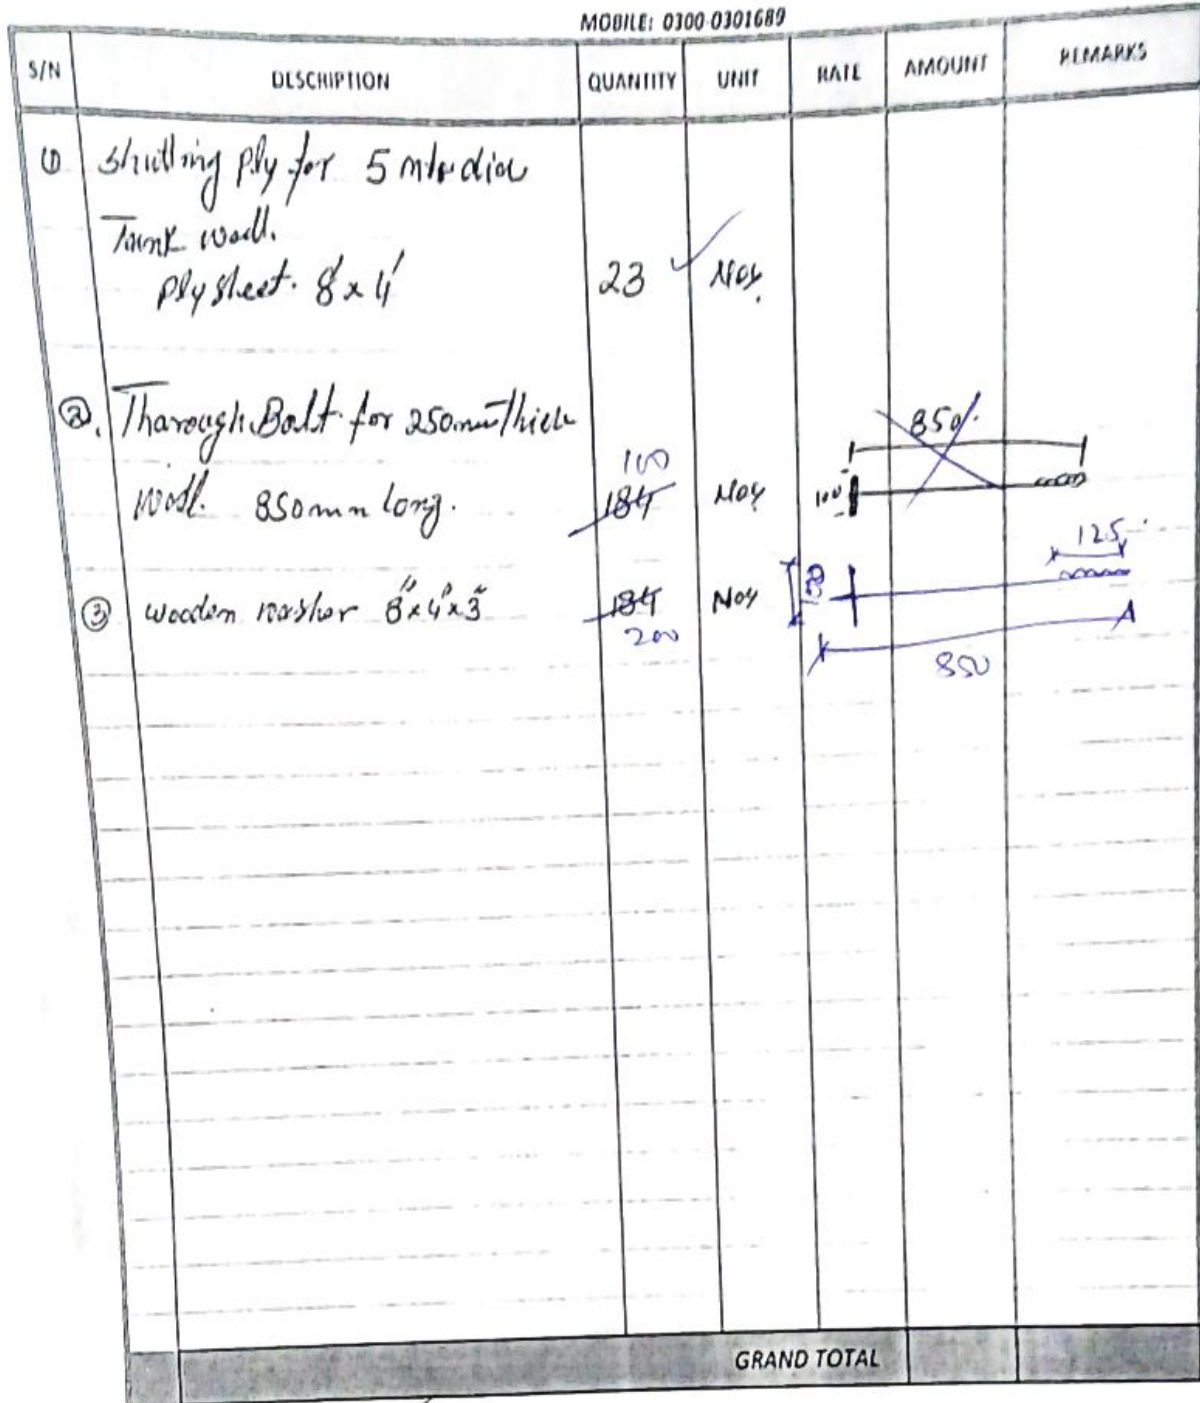 MOBILE: 0300-0301689
S/N DESCRIPTION QUANTITY UNIT RATE AMOUNT REMARKS
① Shuttring Ply for 5 mtr dia
Tank wall.
Ply sheet. 8' x 4' 23 ✓ Nos.
②. Tharough Bolt for 250mm Thick
850
100
wall. 850mm long. 184 Nos 100
125
③ wooden washer 8" x 4" x 3" 184 Nos 100
200
850
GRAND TOTAL